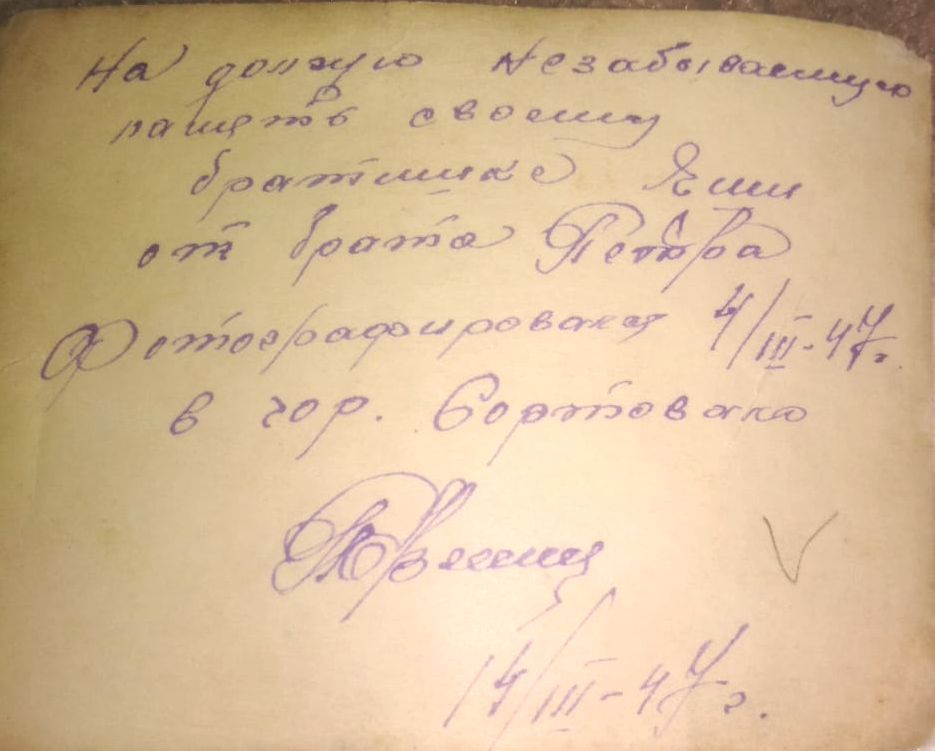 На долгую незабываемую
память своему
братишке Яши
от брата Петра
Фотографировался 4/III-47г.
в гор. Сортовало
14/III-47г.